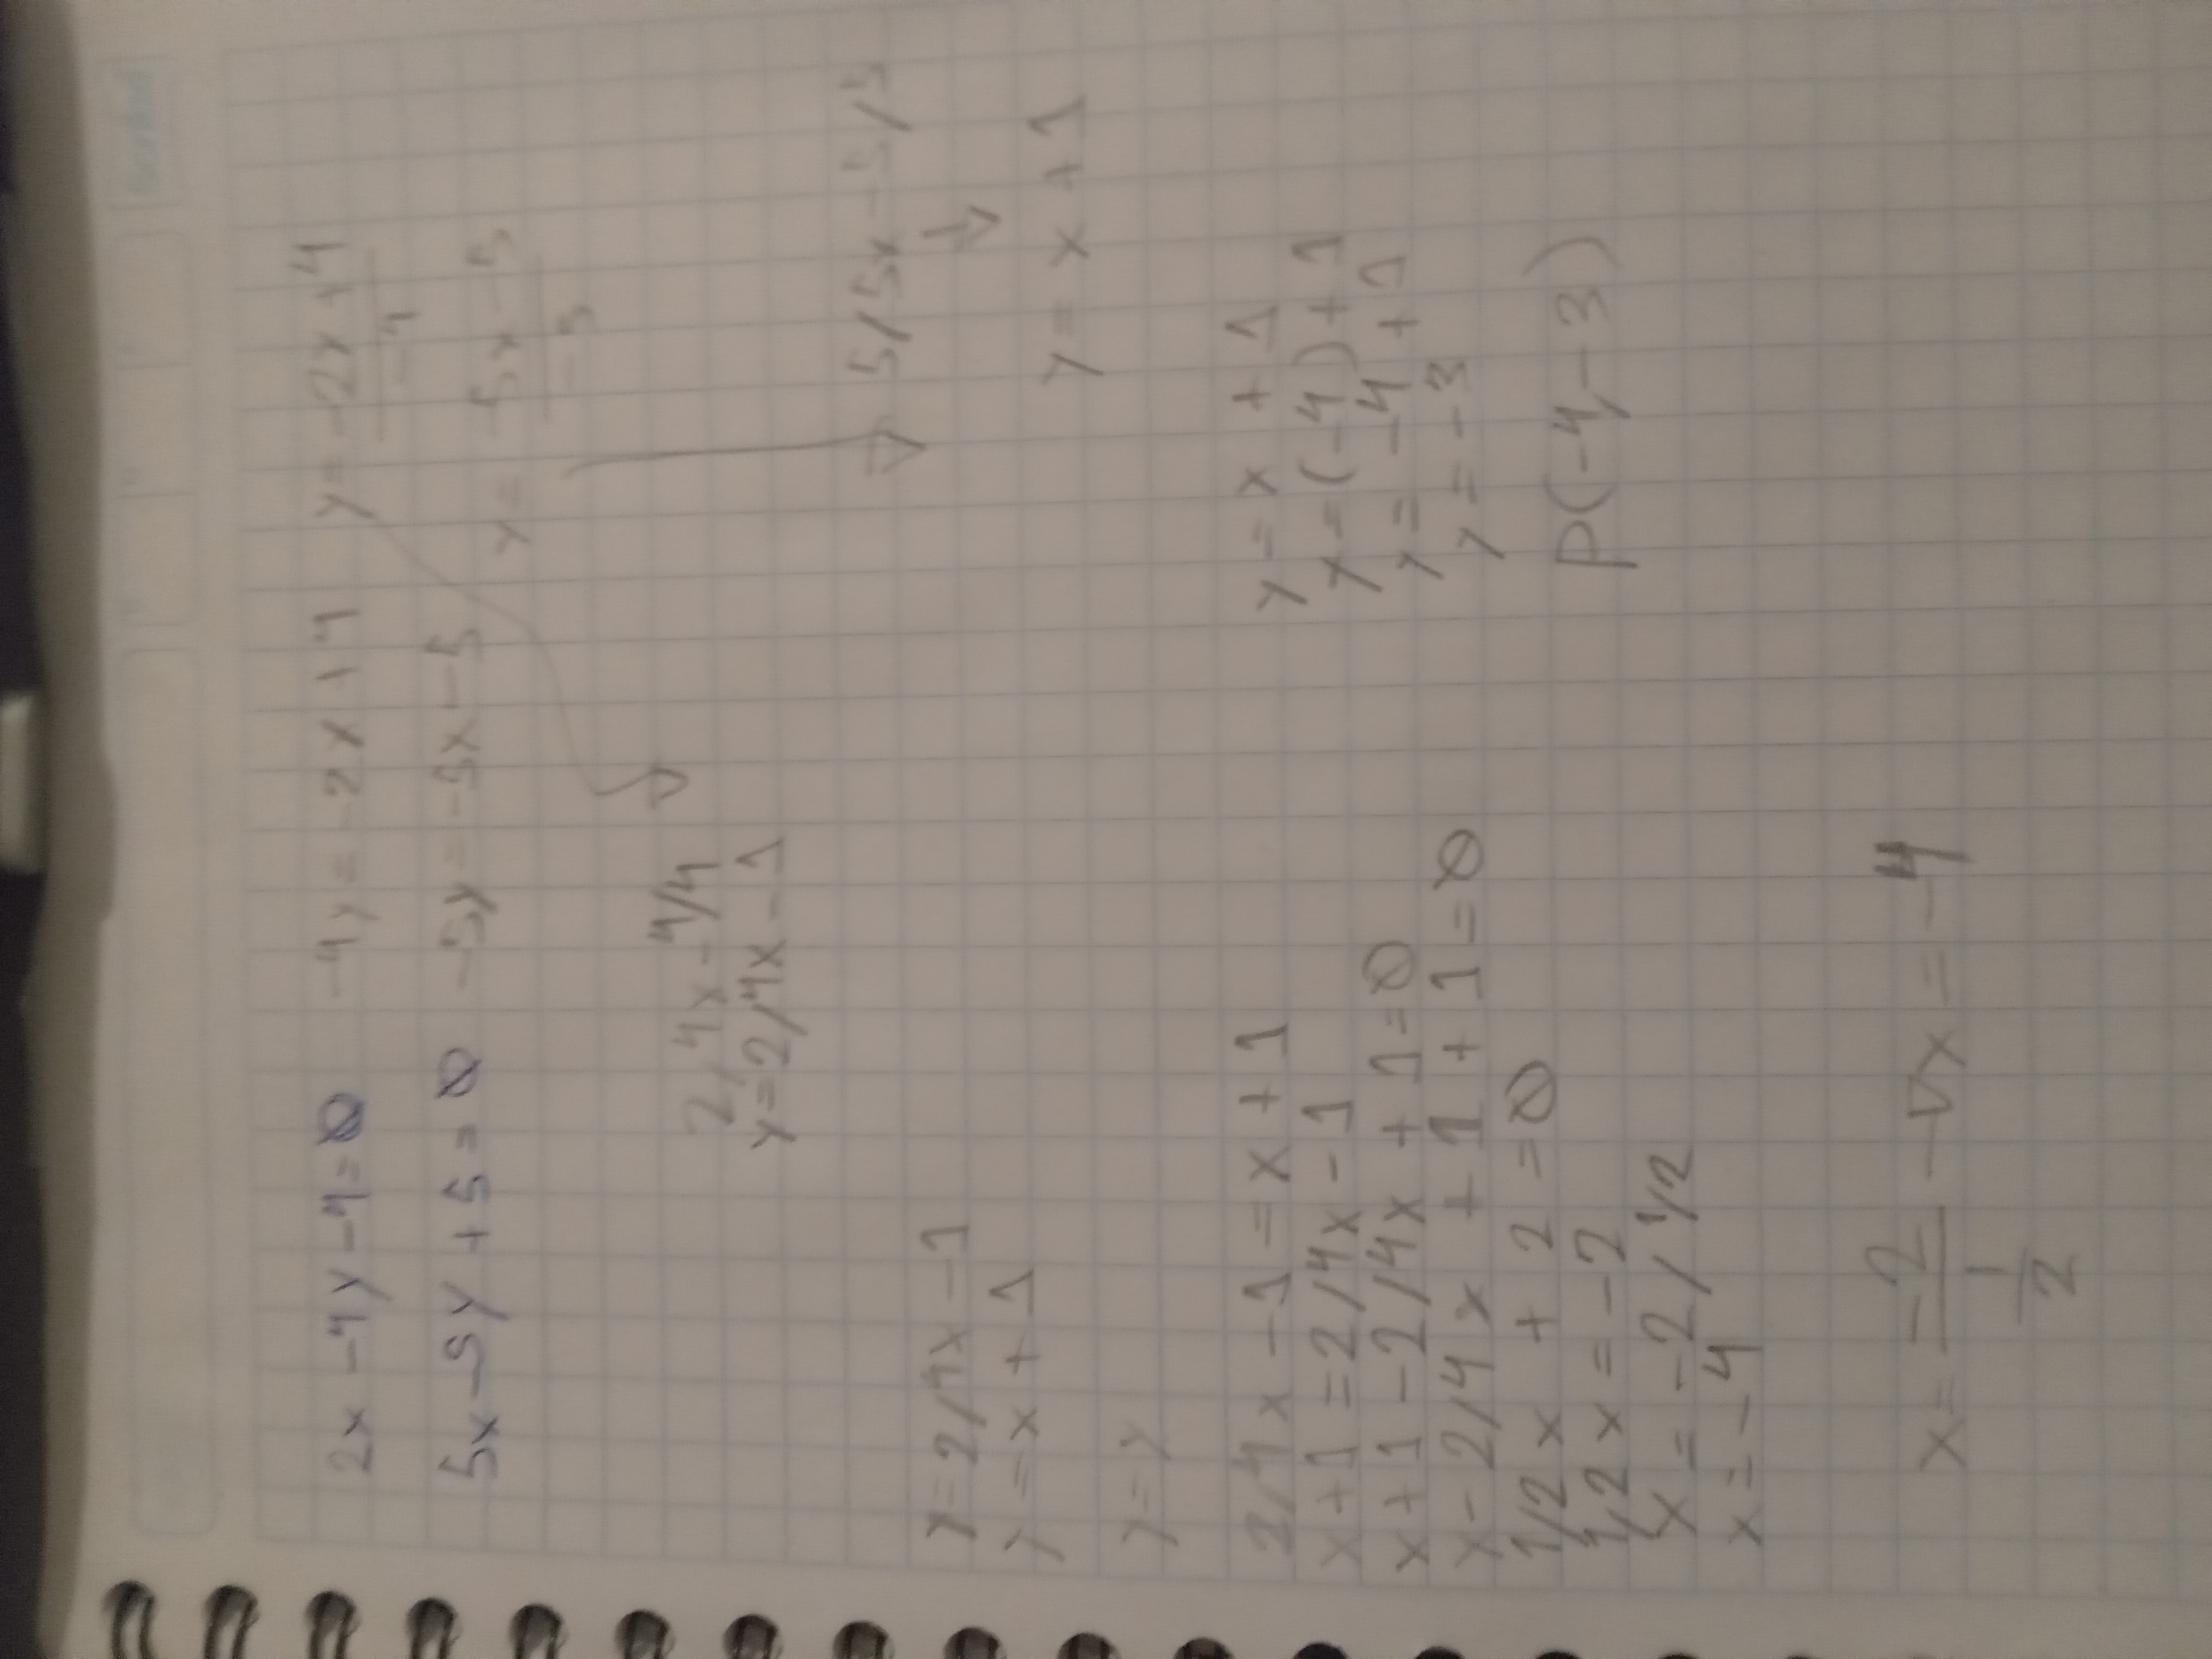 2x-4y-4=0 -4y=-2x+4 y=-2x+4
-4
5x-5y+5=0 -5y=-5x-5 y= -5x-5
-5
2/4x-4/4
y=2/4x-1
5/5x-5/5
y=x+1
y=2/4x-1
y=x+1
y=y
2/4x-1=x+1
x+1=2/4x-1
x+1-2/4x+1=0
x-2/4x+1+1=0
1/2x+2=0
1/2x=-2
x=-2/1/2
x=-4
y=x+1
y=(-4)+1
y=-4+1
y=-3
P(-4,-3)
x=-2 → x=-4
1
2